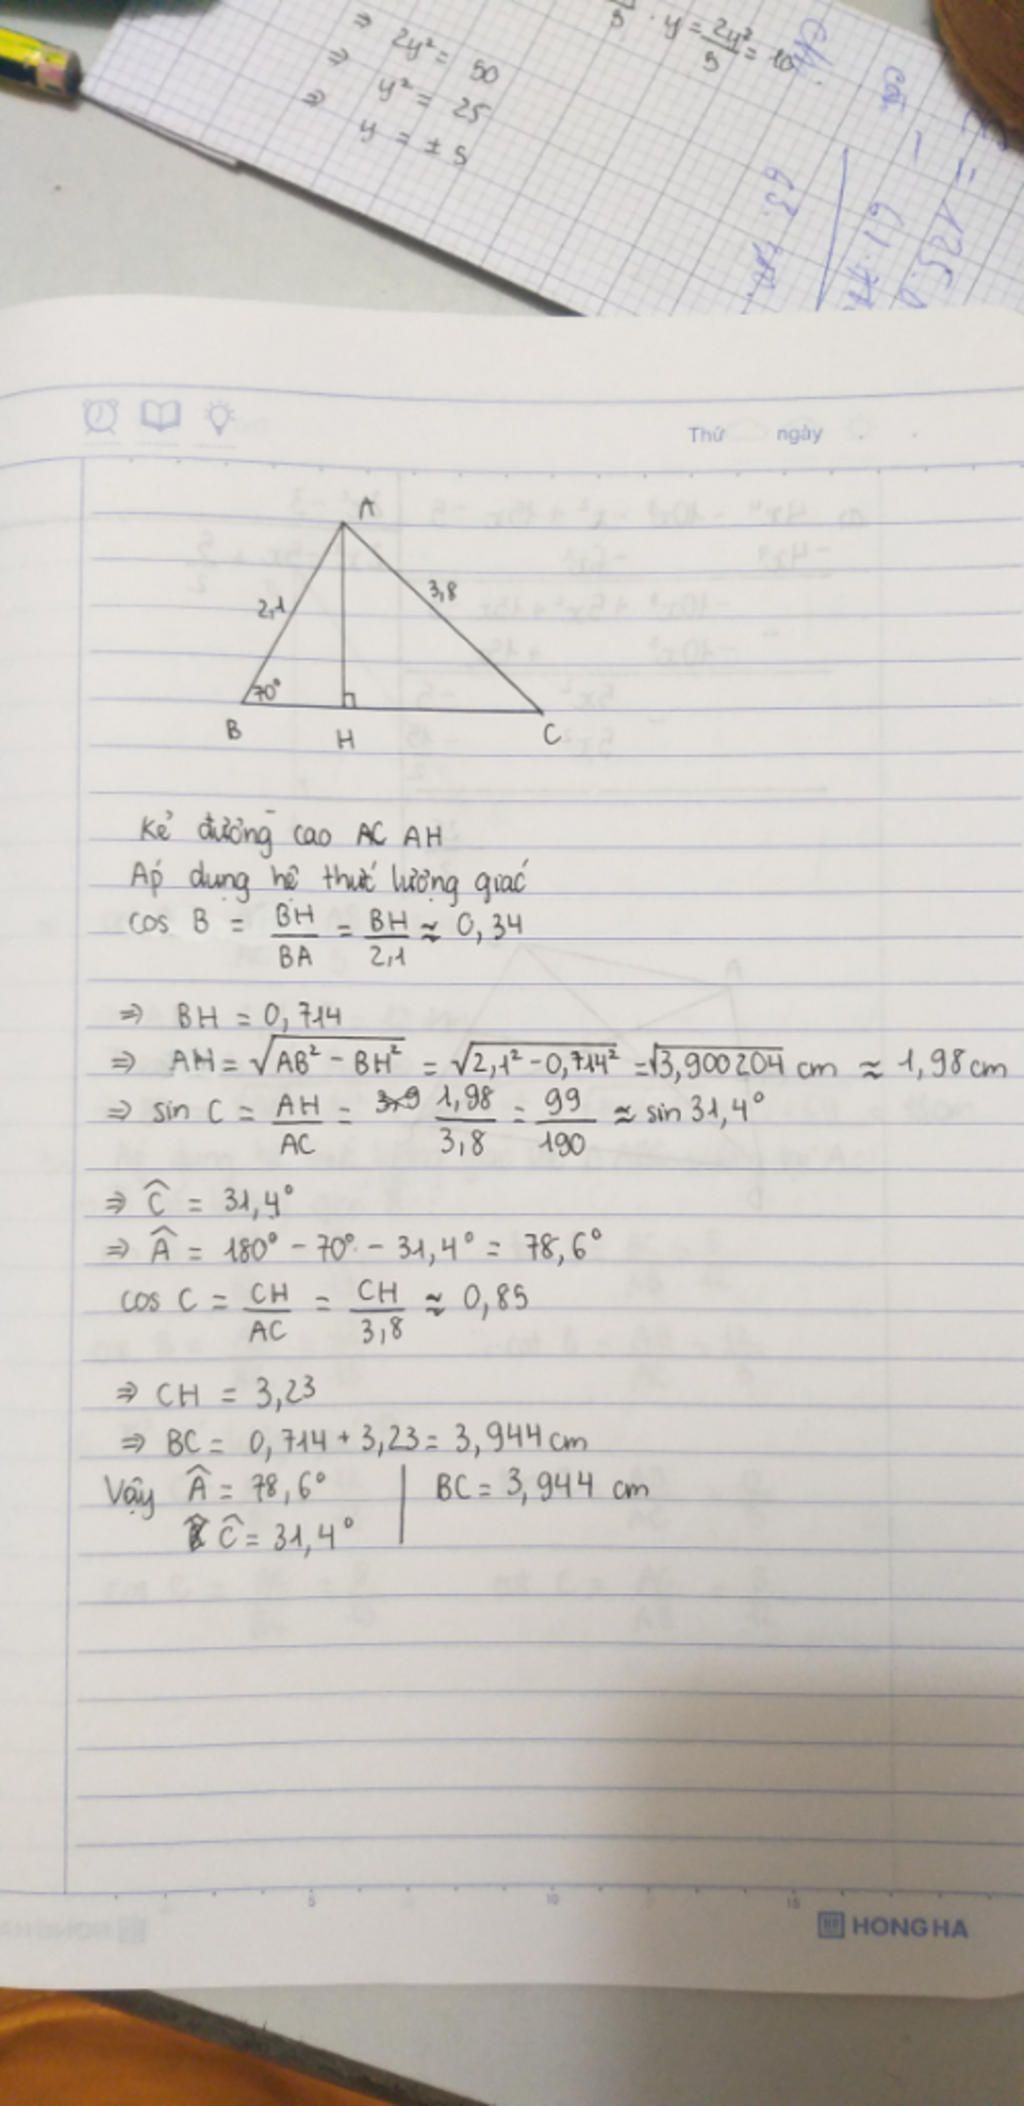 ⇒ 2y² = 50
⇒ y² = 25
⇒ y = ± 5
· y = 2y²/5 = 10
Thứ ngày
A
2,1
3,8
70°
B
H
C
Kẻ đường cao AH
Áp dụng hệ thức lượng giác
cos B = BH/BA = BH/2,1 ≈ 0,34
⇒ BH = 0,714
⇒ AH = √(AB² - BH²) = √(2,1² - 0,714²) = √3,900204 cm ≈ 1,98 cm
⇒ sin C = AH/AC = 1,98/3,8 = 99/190 ≈ sin 31,4°
⇒ Ĉ = 31,4°
⇒ Â = 180° - 70° - 31,4° = 78,6°
cos C = CH/AC = CH/3,8 ≈ 0,85
⇒ CH = 3,23
⇒ BC = 0,714 + 3,23 = 3,944 cm
Vậy Â = 78,6° | BC = 3,944 cm
Ĉ = 31,4°
5 10 15
HONG HA